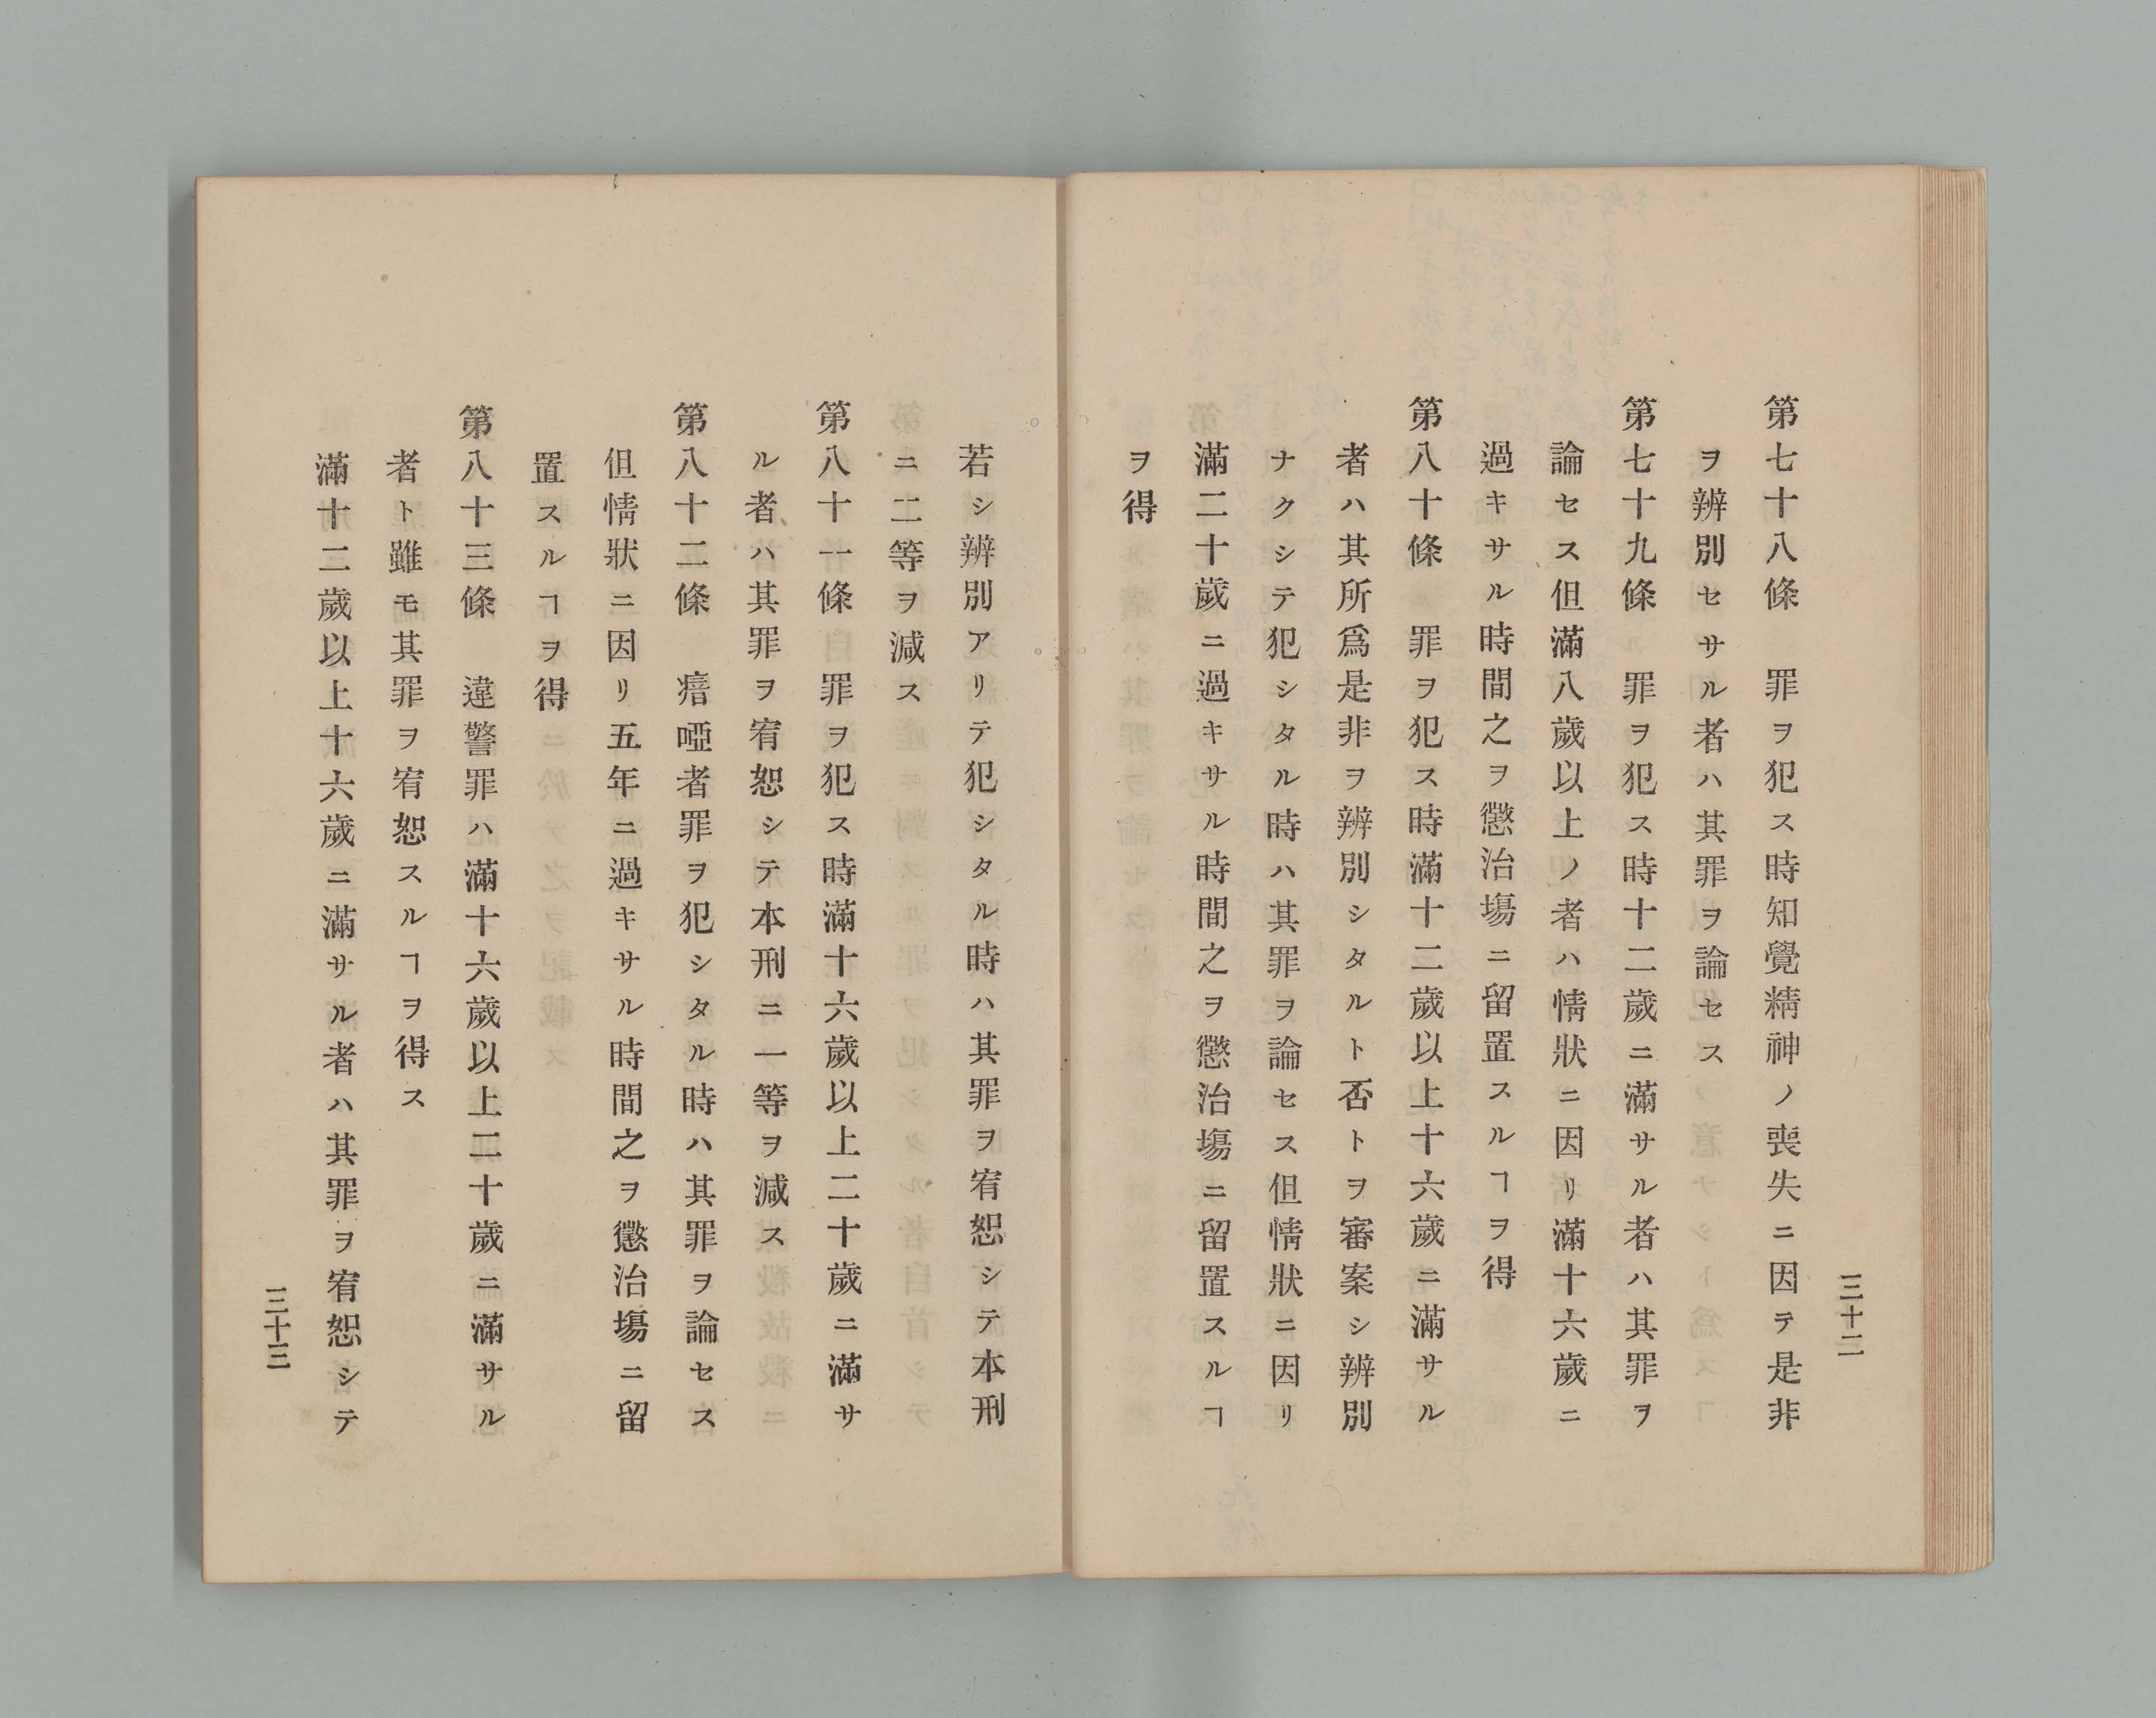 三十二
第七十八條　罪ヲ犯ス時知覺精神ノ喪失ニ因テ是非
ヲ辨別セサル者ハ其罪ヲ論セス
第七十九條　罪ヲ犯ス時十二歲ニ滿サル者ハ其罪ヲ
論セス但滿八歲以上ノ者ハ情狀ニ因リ滿十六歲ニ
過キサル時間之ヲ懲治塲ニ留置スルヿヲ得
第八十條　罪ヲ犯ス時滿十二歲以上十六歲ニ滿サル
者ハ其所爲是非ヲ辨別シタルト否トヲ審案シ辨別
ナクシテ犯シタル時ハ其罪ヲ論セス但情狀ニ因リ
滿二十歲ニ過キサル時間之ヲ懲治塲ニ留置スルヿ
ヲ得
若シ辨別アリテ犯シタル時ハ其罪ヲ宥恕シテ本刑
ニ二等ヲ減ス
第八十一條　罪ヲ犯ス時滿十六歲以上二十歲ニ滿サ
ル者ハ其罪ヲ宥恕シテ本刑ニ一等ヲ減ス
第八十二條　瘖啞者罪ヲ犯シタル時ハ其罪ヲ論セス
但情狀ニ因リ五年ニ過キサル時間之ヲ懲治塲ニ留
置スルヿヲ得
第八十三條　違警罪ハ滿十六歲以上二十歲ニ滿サル
者ト雖モ其罪ヲ宥恕スルヿヲ得ス
滿十二歲以上十六歲ニ滿サル者ハ其罪ヲ宥恕シテ
三十三